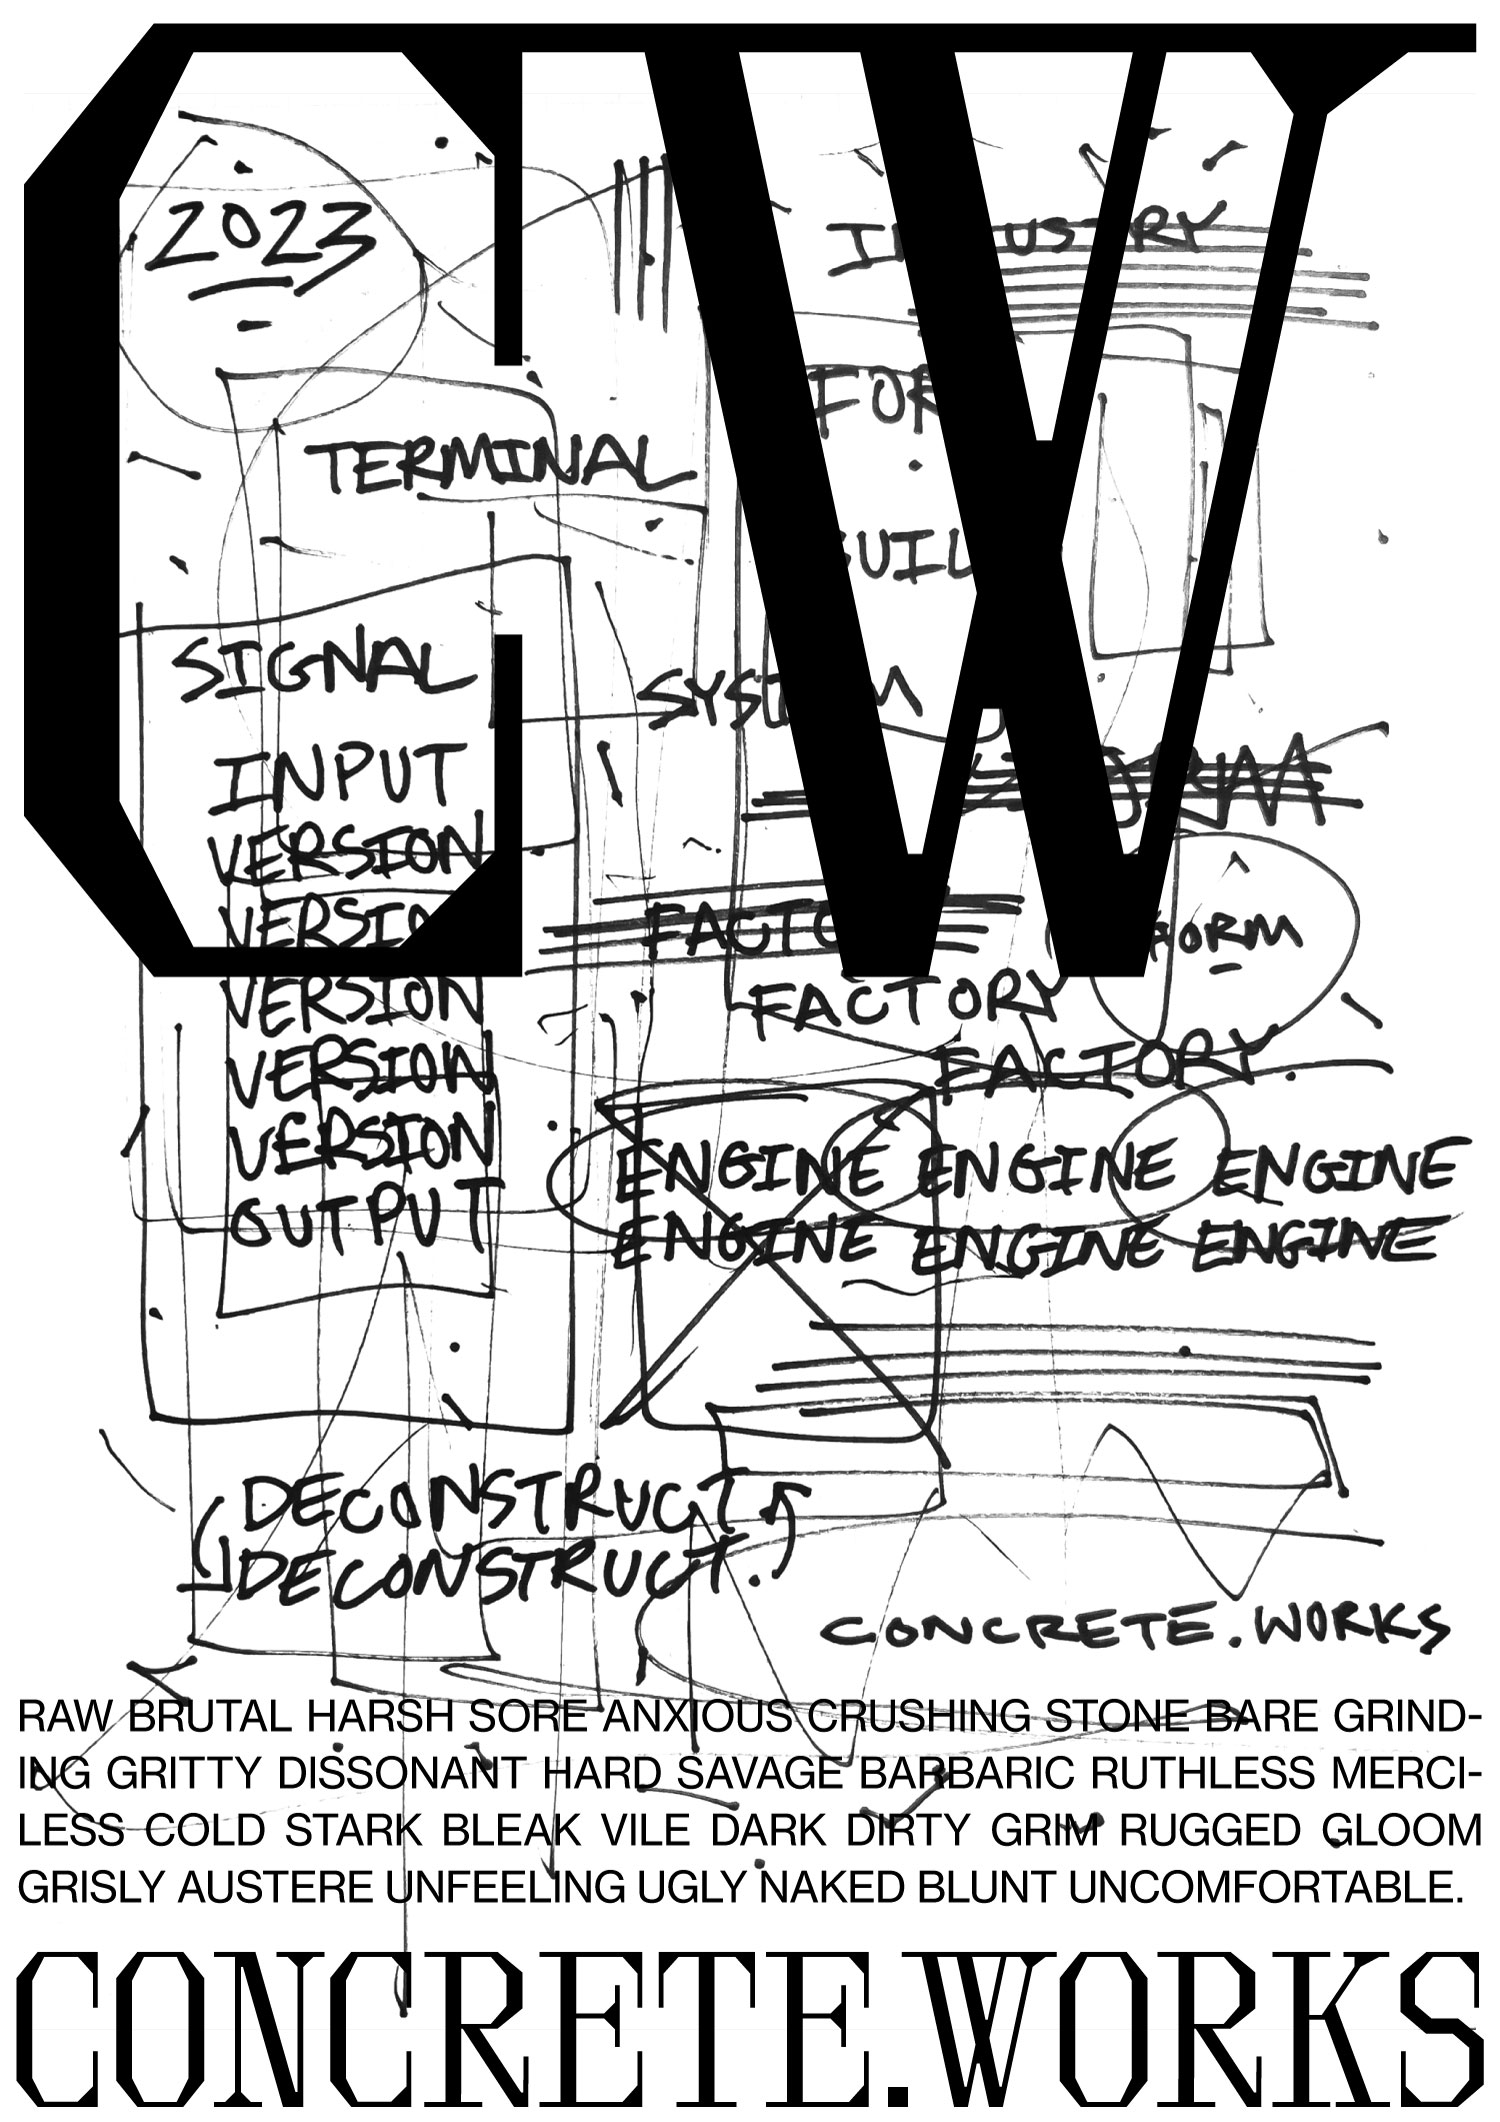 CW
2023
INDUSTRY
TERMINAL
SIGNAL
SYSTEM
INPUT
VERSION
VERSION
VERSION
VERSION
VERSION
OUTPUT
FACTORY
FORM
FACTORY
FACTORY.
ENGINE ENGINE ENGINE
ENGINE ENGINE ENGINE
DECONSTRUCT
DECONSTRUCT.
CONCRETE.WORKS
RAW BRUTAL HARSH SORE ANXIOUS CRUSHING STONE BARE GRIND-
ING GRITTY DISSONANT HARD SAVAGE BARBARIC RUTHLESS MERCI-
LESS COLD STARK BLEAK VILE DARK DIRTY GRIM RUGGED GLOOM
GRISLY AUSTERE UNFEELING UGLY NAKED BLUNT UNCOMFORTABLE.
CONCRETE.WORKS